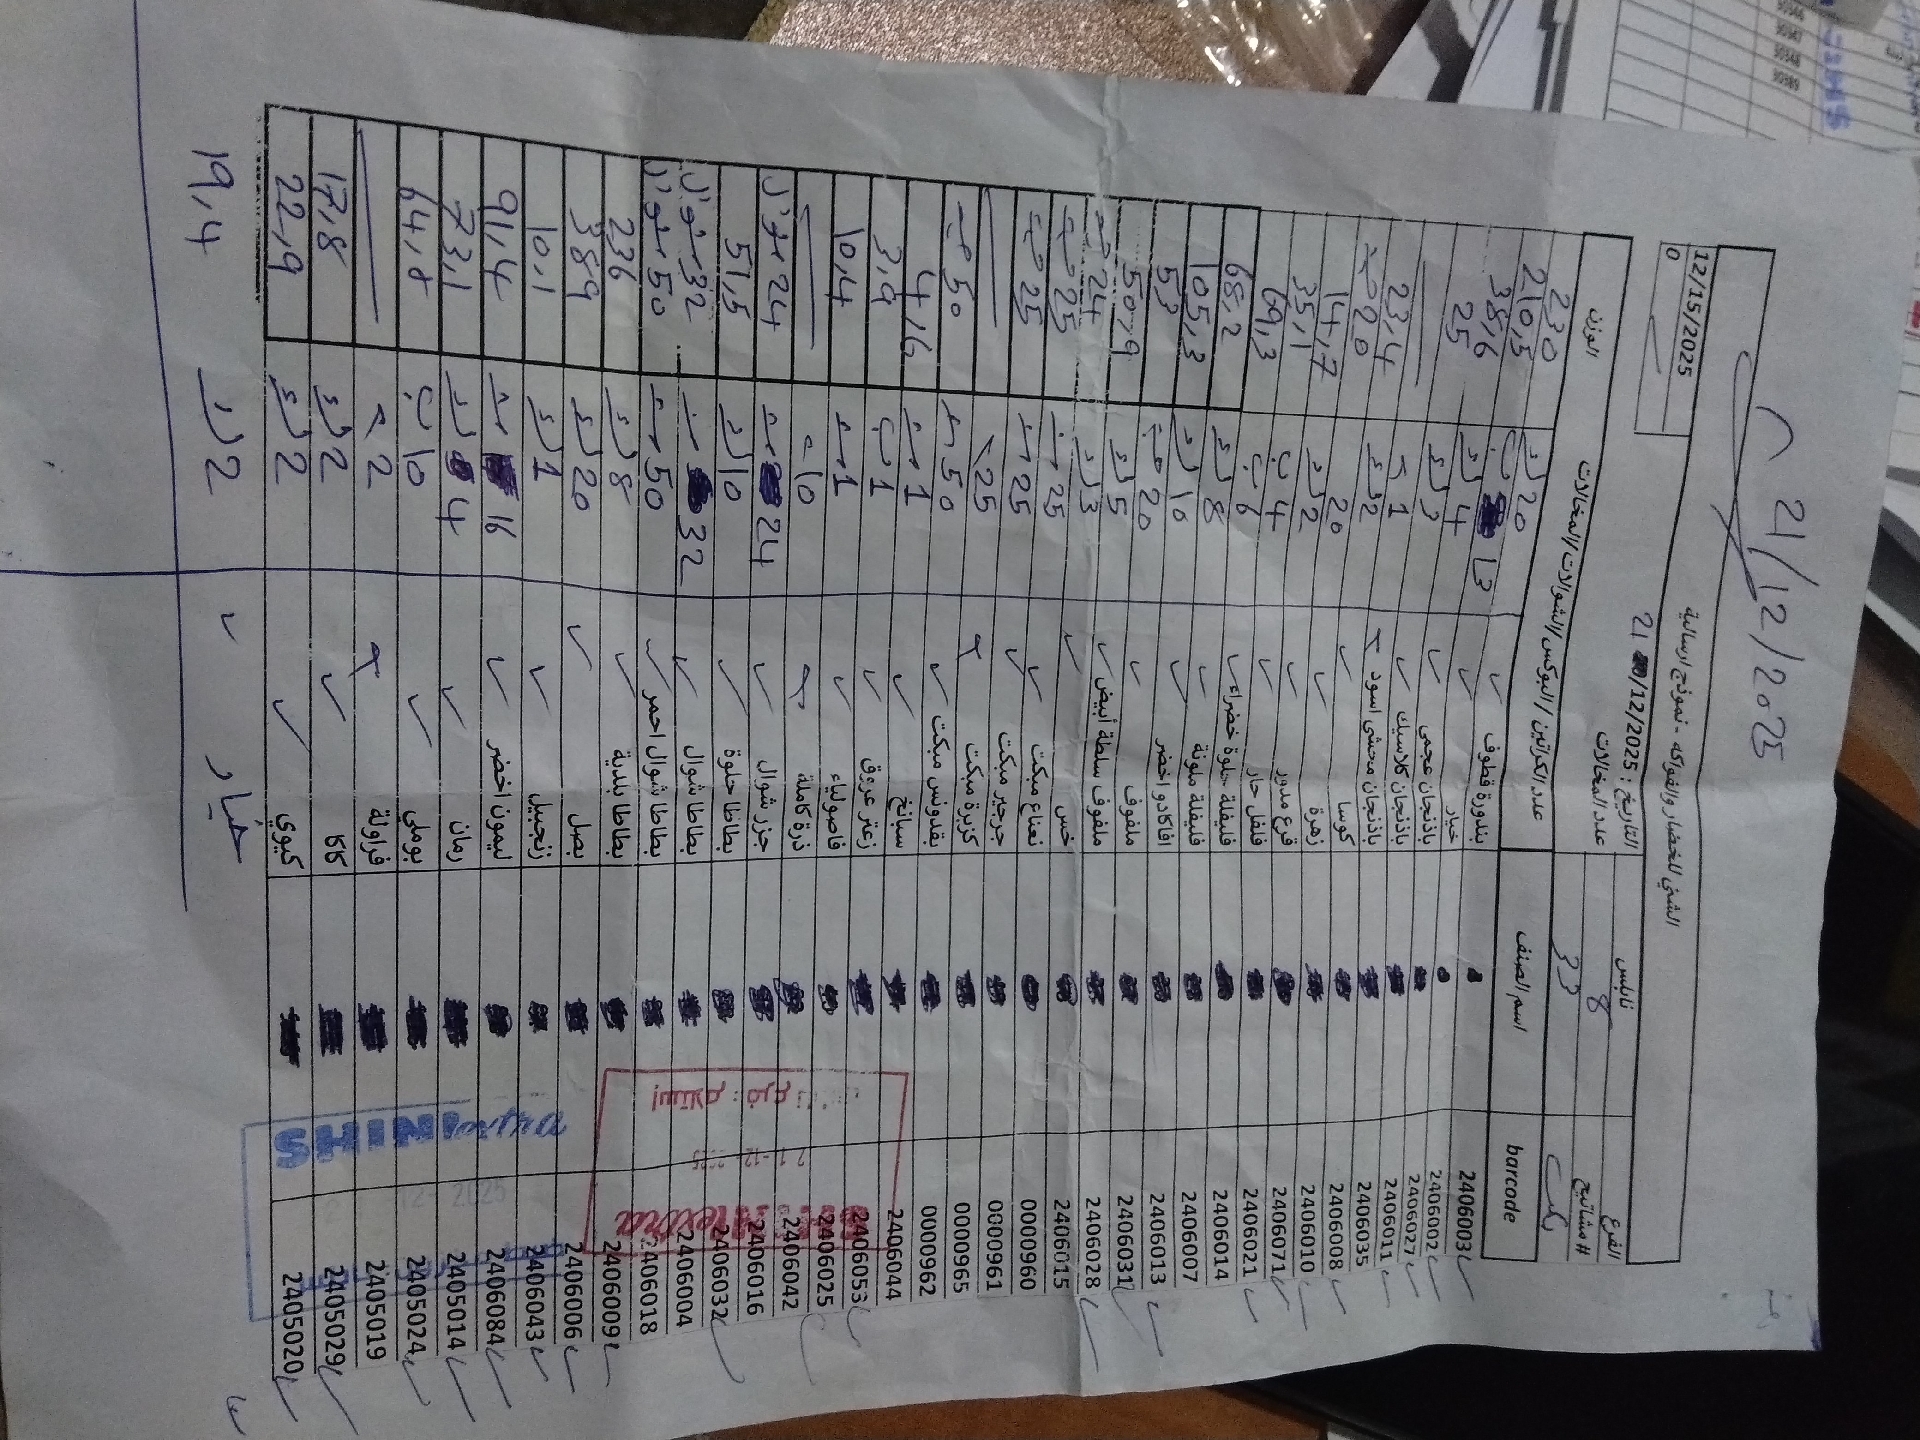 21/12/2025
الشني للخضار والفواكه - نموذج ارسالية
12/15/2025
التاريخ : 21/12/2025
0
الفرع نابلس عدد المخالات
#مشاتيح 8
33
barcode اسم الصنف عدد الكراتين / البوكس/الشوالات/المخالات الوزن
2406003 بندورة قطوف 20 لد 230
2406002 خيار 13 ب 210,5
2406027 باذنجان عجمي 4 لد 38,6
2406011 باذنجان كلاسيك 3 لد 25
2406035 باذنجان محشي اسود 1
2406008 كوسا 2 لد 23,4
2406010 زهرة 20 20 حبة
2406071 قرع مدور 2 لد 14,7
2406021 فلفل حار 4 ب 35,1
2406014 فليفلة حلوة خضراء 6 ب 69,3
2406007 فليفلة ملونة 8 لد 68,2
2406013 افاكادو اخضر 10 لد 105,3
2406031 ملفوف 20 حبة 53
2406028 ملفوف سلطة أبيض 5 لد 50,9
2406015 خس 3 لد 24 حبة
0000960 نعناع مبكت 25 25 حبة
0000961 جرجير مبكت 25 25 حبة
0000965 كزبرة مبكت 25
0000962 بقدونس مبكت 50 50 حبة
2406044 سبانخ 1 4,6
2406053 زعتر عروق 1 ب 3,9
2406025 فاصولياء 1 10,4
2406042 ذرة كاملة 10
2406016 جزر شوال 24 24 شوال
2406032 بطاطا حلوة 10 لد 51,5
2406004 بطاطا شوال 32 32 شوال
2406018 بطاطا شوال احمر 50 50 شوال
2406009 بطاطا بلدية 8 لد 236
2406006 بصل 20 لد 389
2406043 زنجبيل 1 لد 10,1
2406084 ليمون اخضر 16 91,4
2405014 رمان 4 لد 73,1
2405024 بوملي 10 ب 64,8
2405019 فراولة 2
2405029 كاكا 2 لد 17,8
2405020 كيوي 2 لد 22,9
خيار 2 لد 19,4
SHINI extra